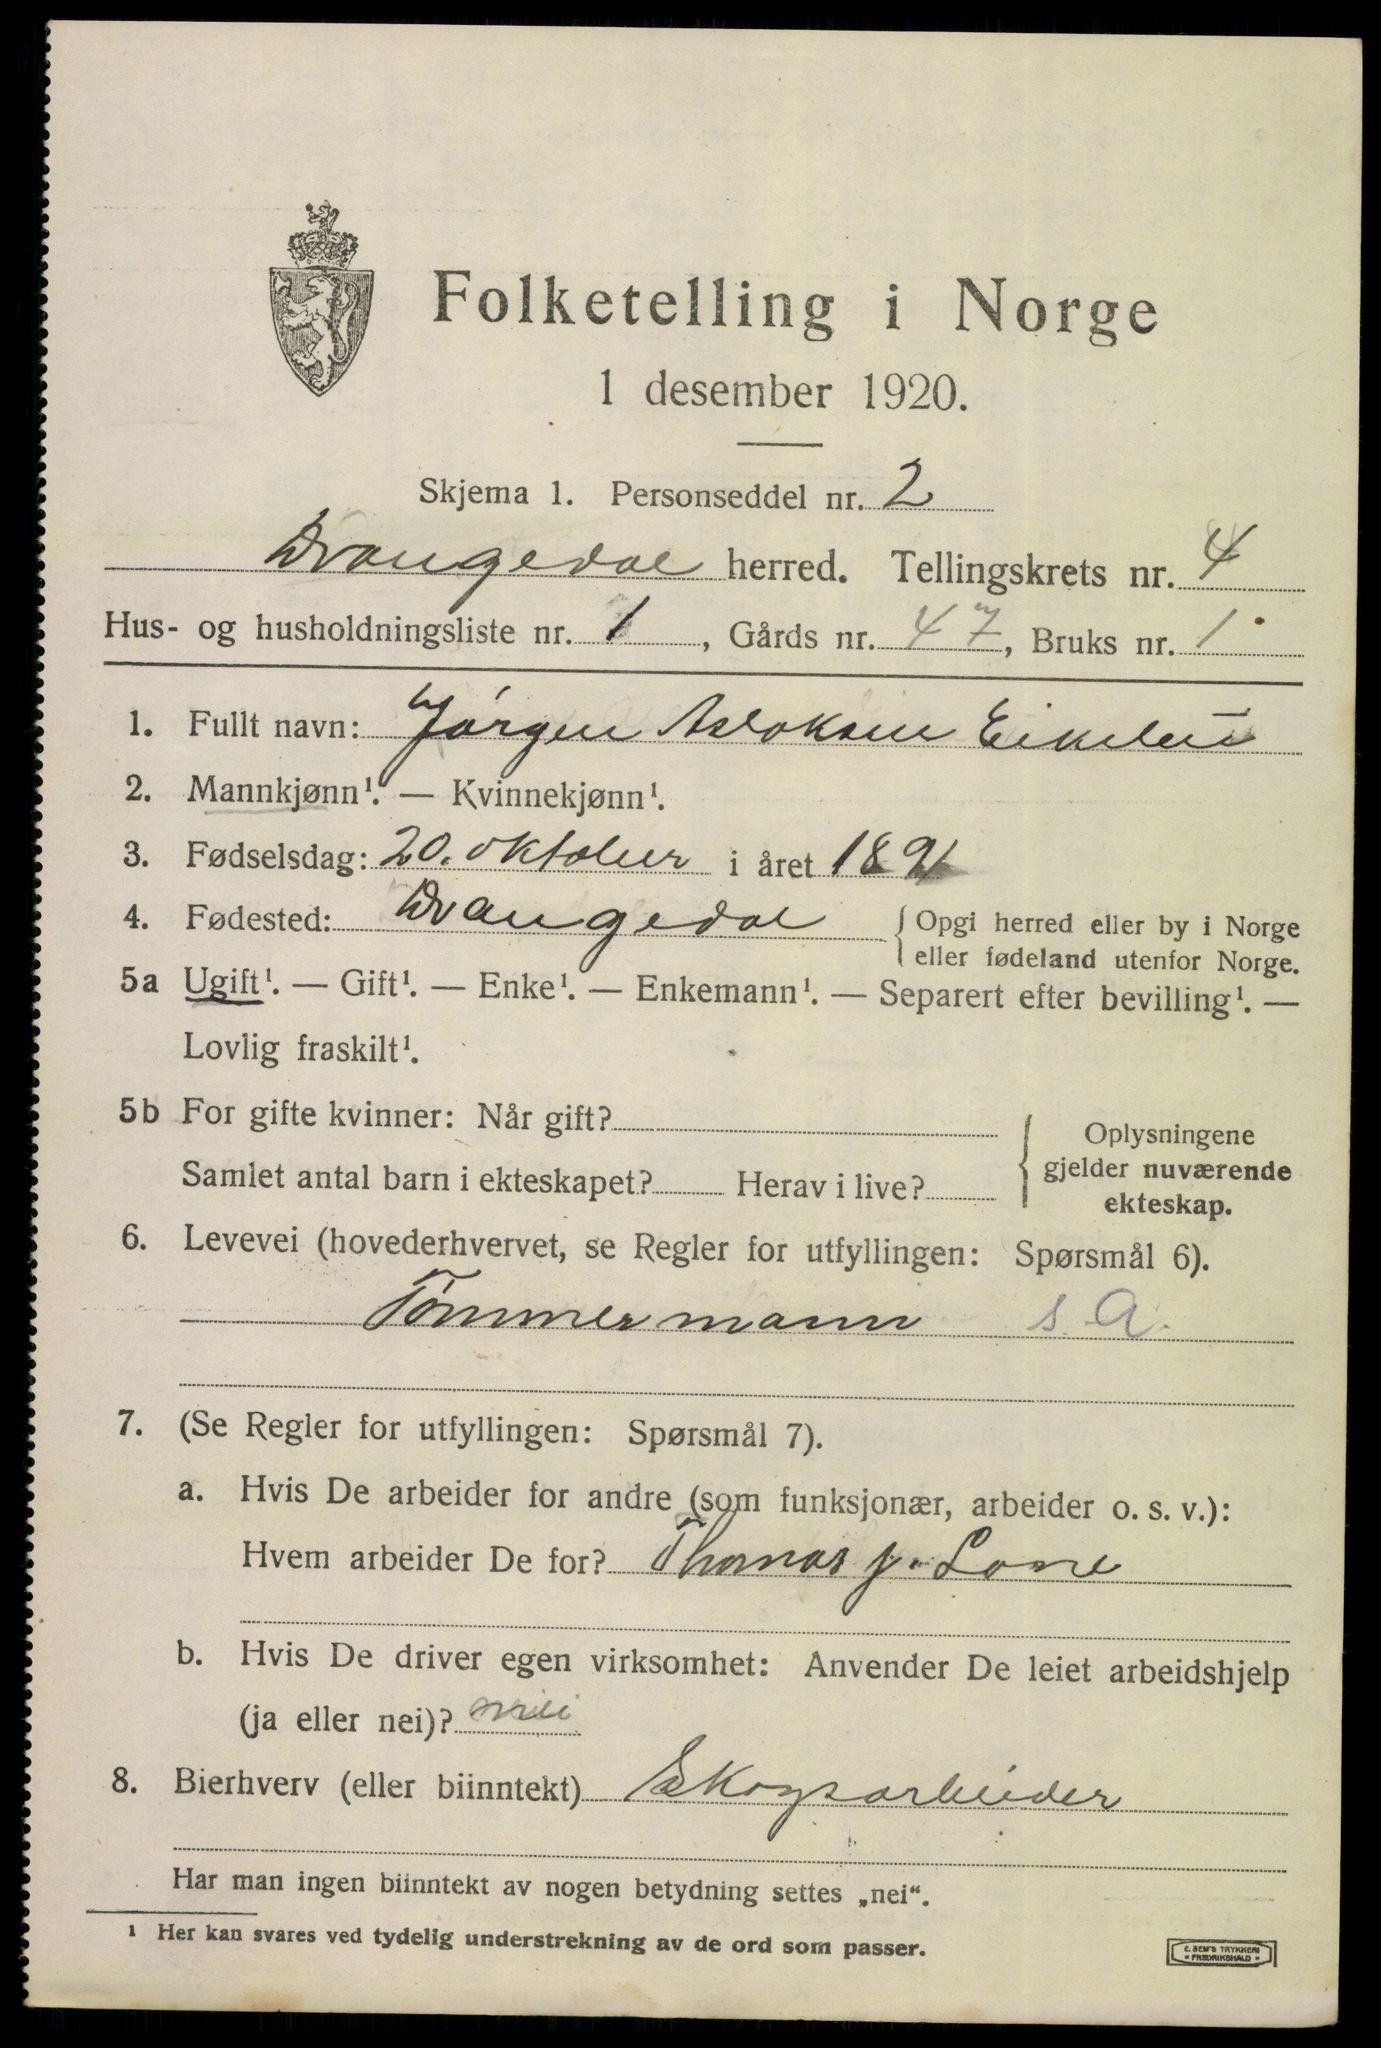 Folketelling i Norge
1 desember 1920.
Skjema 1. Personseddel nr. 2
Drangedal herred. Tellingskrets nr. 4
Hus- og husholdningsliste nr. 1, Gårds nr. 47, Bruks nr. 1
1. Fullt navn: Jørgen Aslaksen
2. Mannkjønn¹. — Kvinnekjønn¹.
3. Fødselsdag: 20. oktober i året 1891
4. Fødested: Drangedal { Opgi herred eller by i Norge
eller fødeland utenfor Norge.
5a Ugift¹. — Gift¹. — Enke¹. — Enkemann¹. — Separert efter bevilling¹. —
Lovlig fraskilt¹.
5b For gifte kvinner: Når gift?
Samlet antal barn i ekteskapet? Herav i live?
{ Oplysningene
gjelder nuværende
ekteskap.
6. Levevei (hovederhvervet, se Regler for utfyllingen: Spørsmål 6).
Tømmermann s. A.
7. (Se Regler for utfyllingen: Spørsmål 7).
a. Hvis De arbeider for andre (som funksjonær, arbeider o. s. v.):
Hvem arbeider De for? Thomas J. Lone
b. Hvis De driver egen virksomhet: Anvender De leiet arbeidshjelp
(ja eller nei)? nei
8. Bierhverv (eller biinntekt) Skogsarbeider
Har man ingen biinntekt av nogen betydning settes „nei“.
¹ Her kan svares ved tydelig understrekning av de ord som passer.
E. SEM'S TRYKKERI
• FREDRIKSHALD •